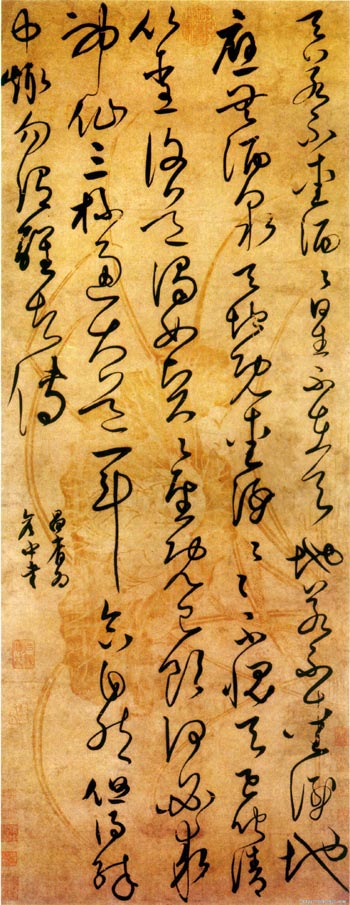 天若不愛酒〻星不在天地若不愛酒地
應無酒泉天地既愛酒〻〻不愧天已聞清
比聖復道濁如賢〻聖既已飲何必求
神仙三杯通大道一斗合自然但得醉
中趣勿謂醒者傳
昌裔為
彥中書